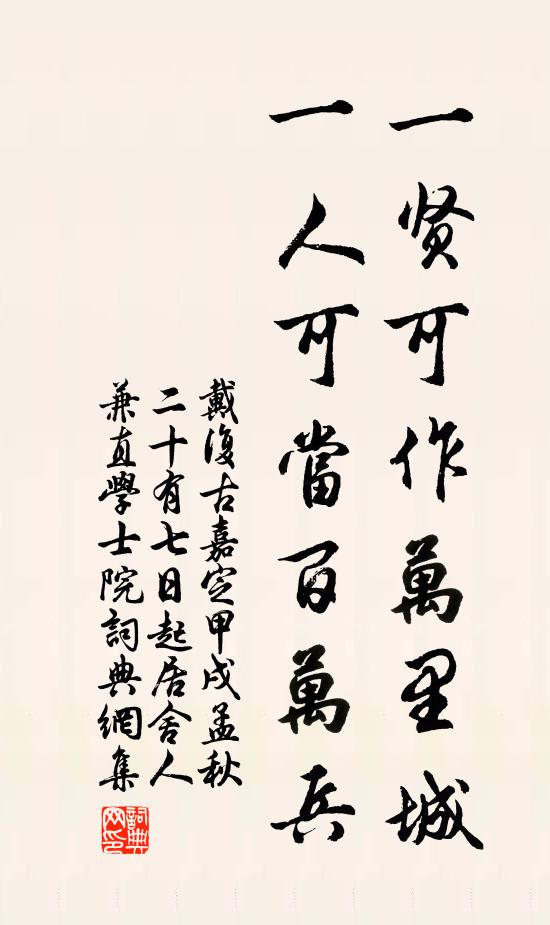 一贤可作萬里城
一人可當百萬兵
戴復古嘉定甲戌孟秋
二十有七日起居舍人
兼直學士院詞典網集
詞典网印